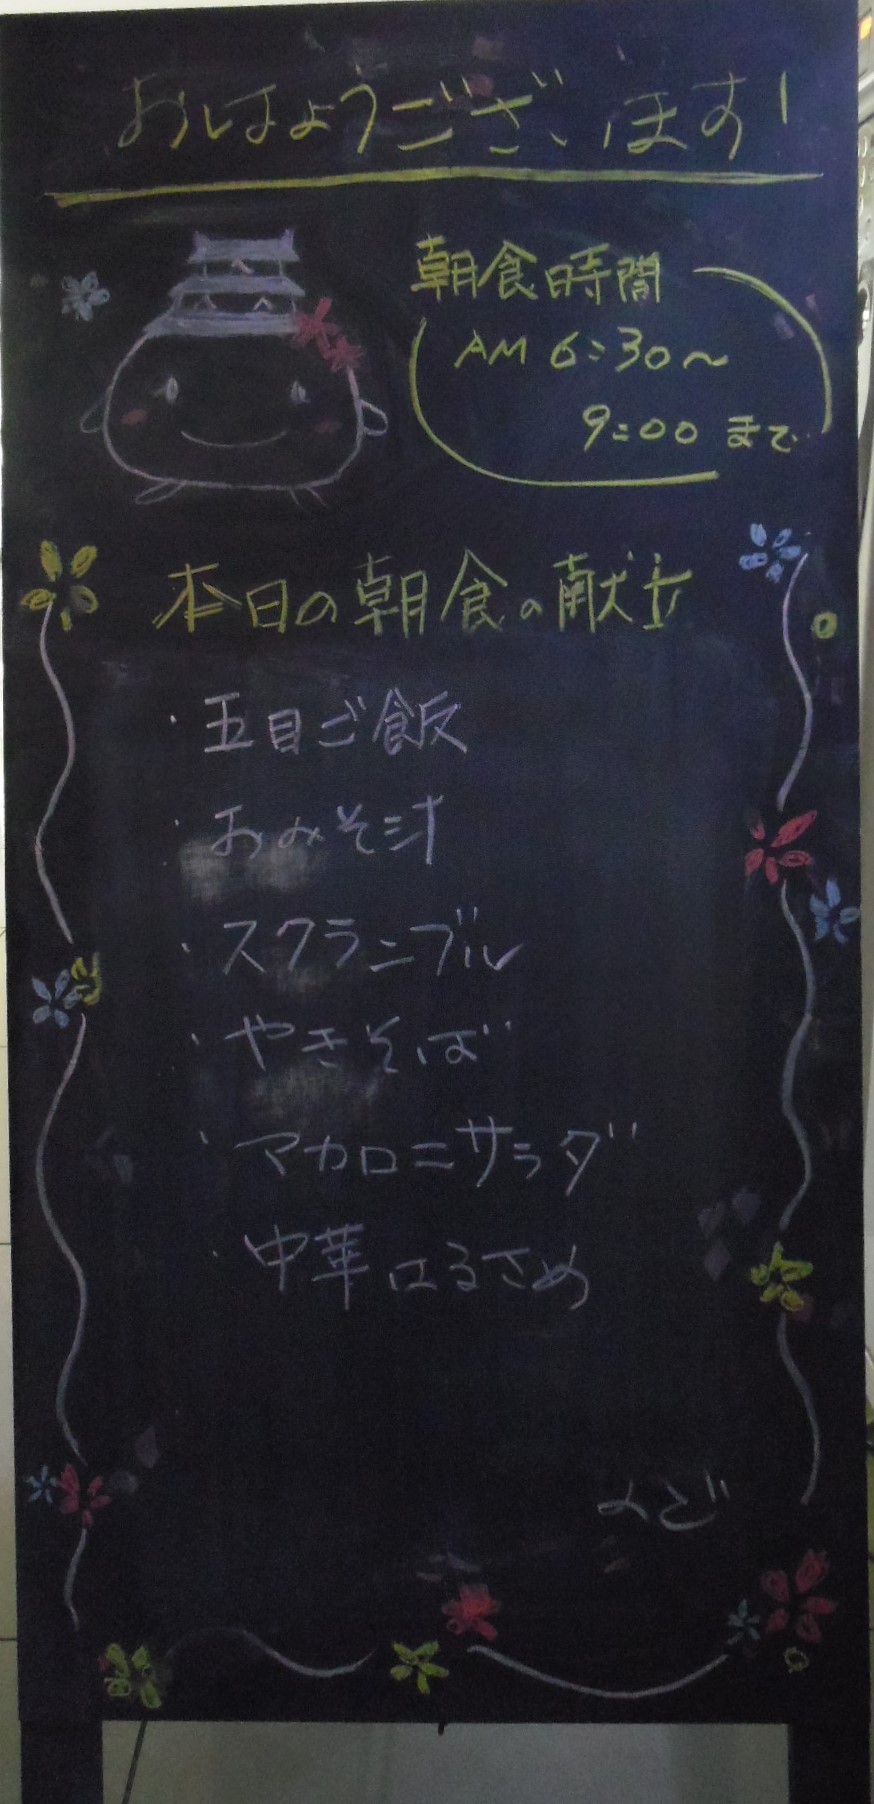 おはようございます!
朝食時間
AM 6:30~
9:00 まで
本日の朝食の献立
・五目ご飯
・おみそ汁
・スクランブル
・やきそば
・マカロニサラダ
・中華はるさめ
など